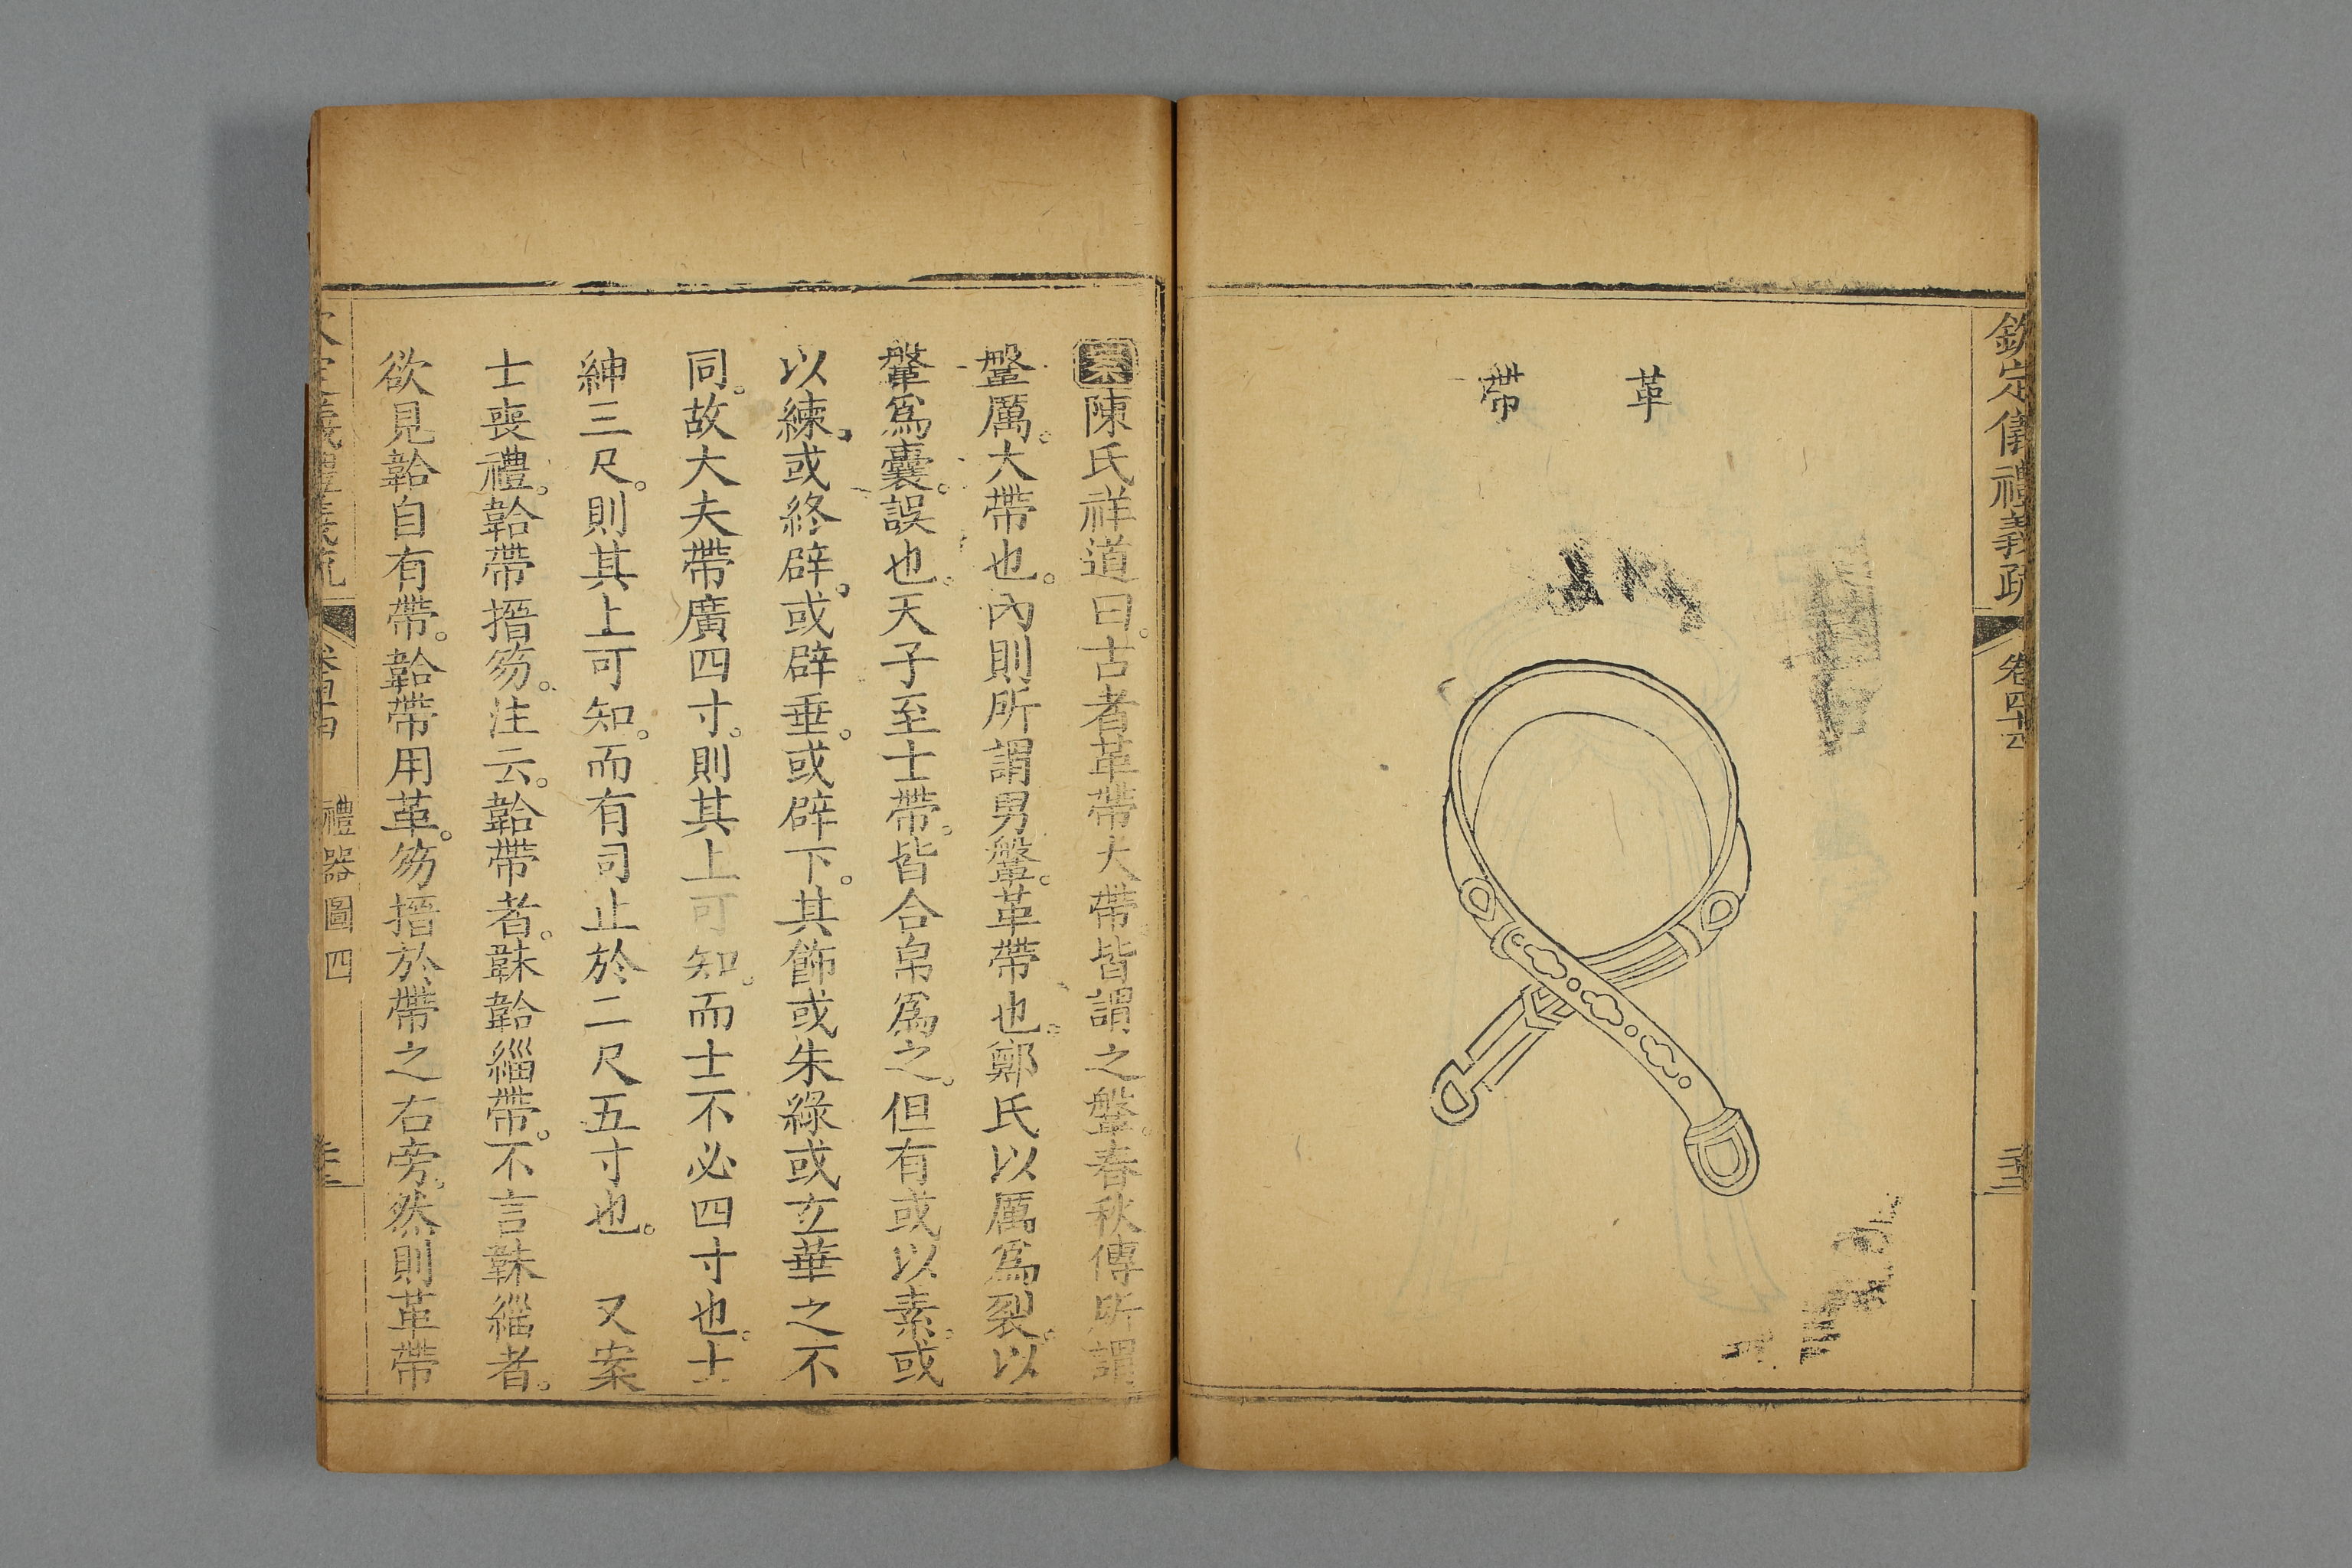 欽定儀禮義疏
卷四十四
革帶
案陳氏祥道曰。古者革帶大帶。皆謂之鞶。春秋傳所謂
鞶厲。大帶也。內則所謂男鞶。革帶也。鄭氏以厲爲裂。以
鞶爲囊。誤也。天子至士帶。皆合帛爲之。但有或以素。或
以練。或終辟。或辟垂。或辟下。其飾或朱綠或玄華之不
同。故大夫帶廣四寸。則其上可知。而士不必四寸也。士
紳三尺。則其上可知。而有司止於二尺五寸也。 又案
士喪禮。韐帶搢笏。注云。韐帶者。韎韐緇帶。不言韎緇者。
欲見韐自有帶。韐帶用革。笏搢於帶之右旁。然則革帶
禮器圖四